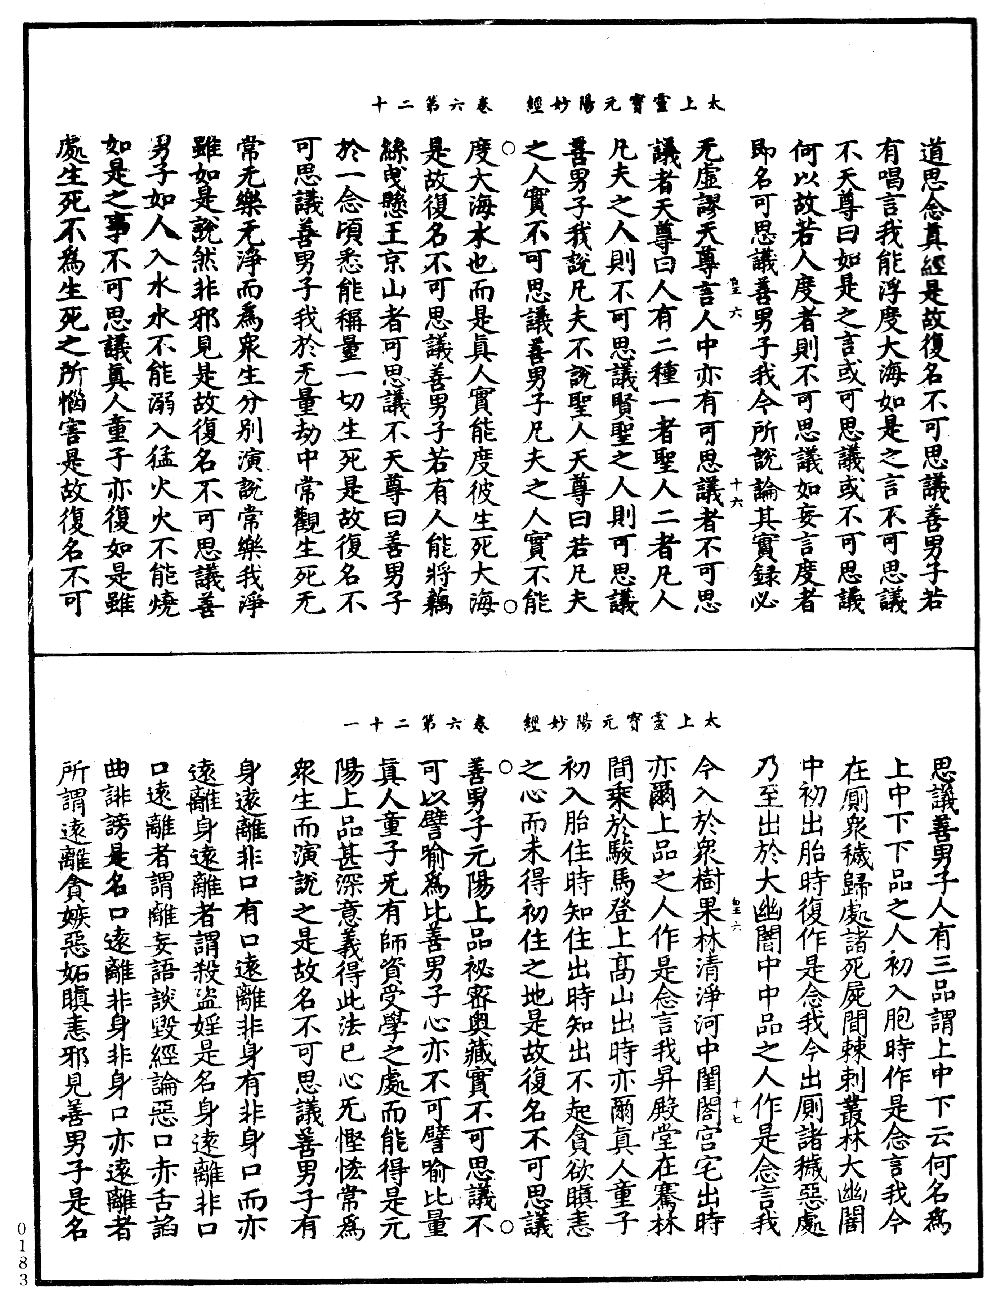 太上靈寶元陽妙經　卷六第二十
道思念真經是故復名不可思議善男子若
有唱言我能浮度大海如是之言不可思議
不天尊曰如是之言或可思議或不可思議
何以故若人度者則不可思議如妄言度者
即名可思議善男子我今所說論其實録必
六　十六
无虛謬天尊言人中亦有可思議者不可思
議者天尊曰人有二種一者聖人二者凡人
凡夫之人則不可思議賢聖之人則可思議
善男子我說凡夫不說聖人天尊曰若凡夫
之人實不可思議善男子凡夫之人實不能
度大海水也而是真人實能度彼生死大海
是故復名不可思議善男子若有人能將藕
絲曳懸王京山者可思議不天尊曰善男子
於一念頃悉能稱量一切生死是故復名不
可思議善男子我於无量劫中常觀生死无
常无樂无淨而為衆生分別演說常樂我淨
雖如是說然非邪見是故復名不可思議善
男子如人入水水不能溺入猛火火不能燒
如是之事不可思議真人童子亦復如是雖
處生死不為生死之所惱害是故復名不可
太上靈寶元陽妙經　卷六第二十一
思議善男子人有三品謂上中下云何名為
上中下下品之人初入胞時作是念言我今
在厠衆穢歸處諸死屍間棘刺叢林大幽闇
中初出胎時復作是念我今出厠諸穢惡處
乃至出於大幽闇中中品之人作是念言我
六　十七
今入於衆樹果林清淨河中閨閤宮宅出時
亦爾上品之人作是念言我昇殿堂在騫林
間乘於駿馬登上高山出時亦爾真人童子
初入胎住時知住出時知出不起貪欲瞋恚
之心而未得初住之地是故復名不可思議
善男子元陽上品祕密奧藏實不可思議不
可以譬喻為比善男子心亦不可譬喻比量
真人童子无有師資受學之處而能得是元
陽上品甚深意義得此法已心无慳悋常為
衆生而演說之是故名不可思議善男子有
身遠離非口有口遠離非身有非身口而亦
遠離身遠離者謂殺盜婬是名身遠離非口
口遠離者謂離妄語談毀經論惡口赤舌諂
曲誹謗是名口遠離非身非身口亦遠離者
所謂遠離貪嫉惡妬瞋恚邪見善男子是名
0183